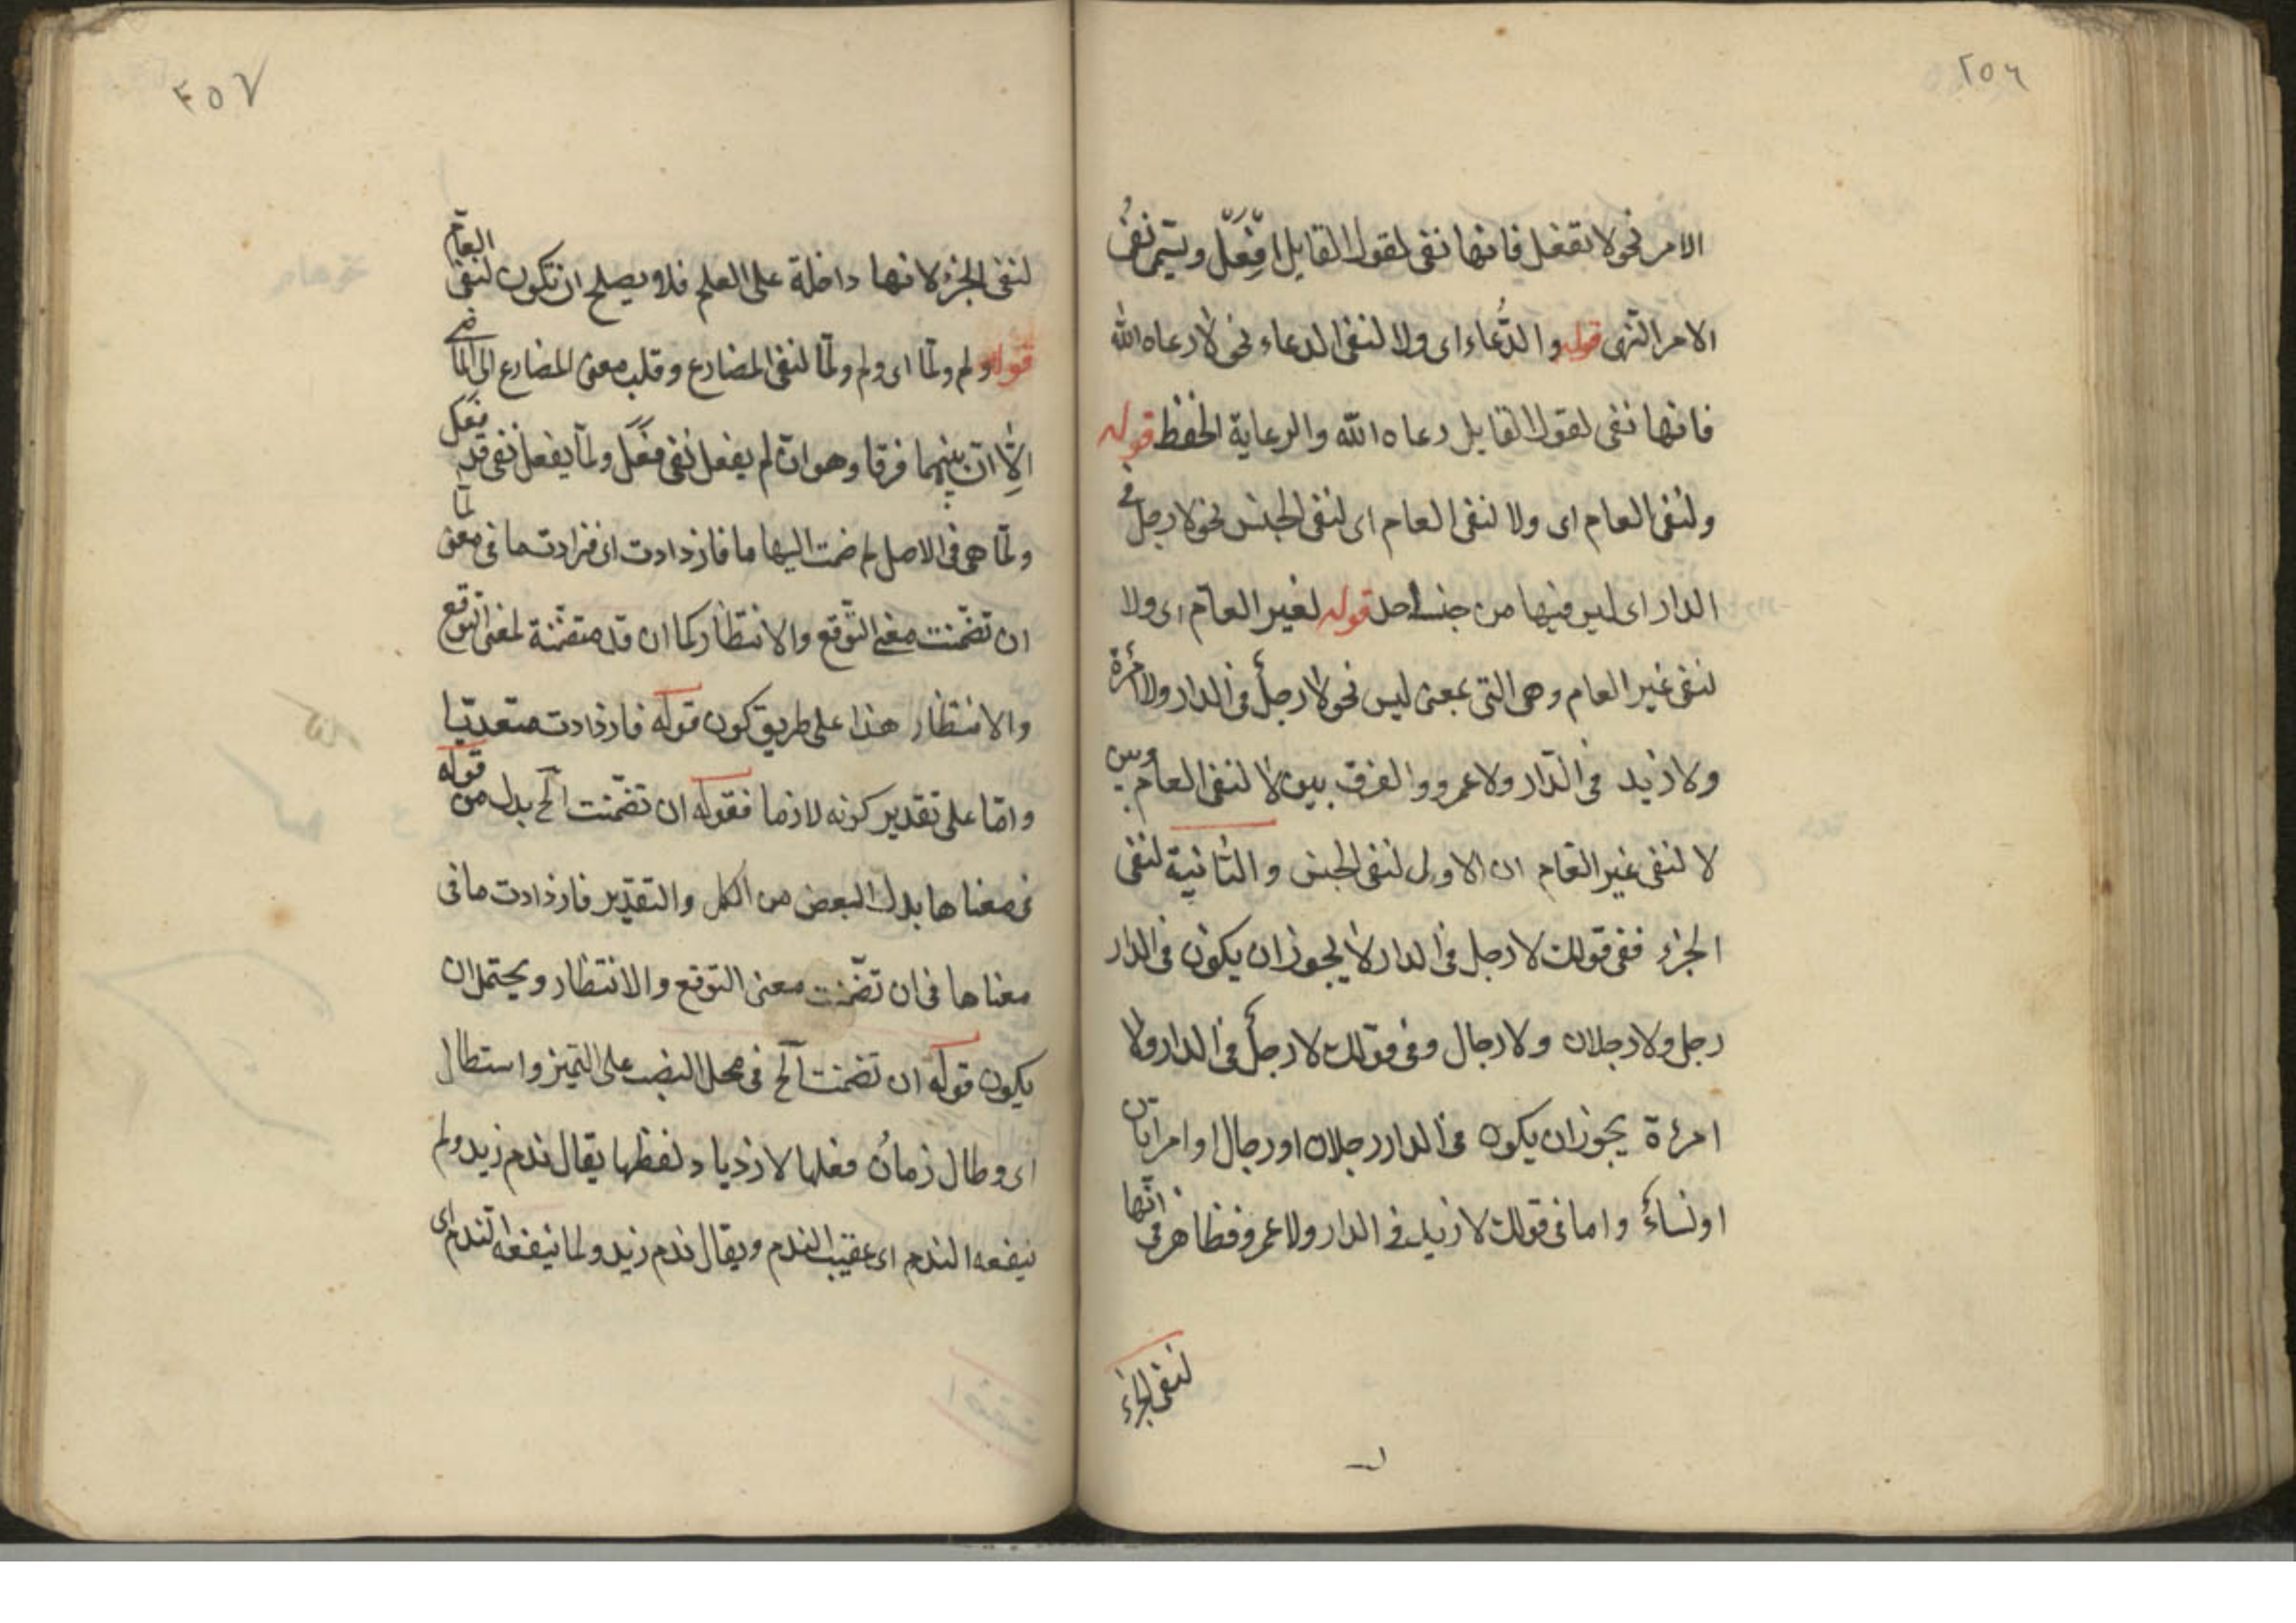 ٢٥٦
الامر نحو لا تفعل فانها نفى لقول القايل افعل ويسمى نفى
الامر النهى قوله والدُّعاء اى ولا لنفى الدعاء نحو لا رعاه الله
فانها نفى لقول القايل رعاه الله والرعاية الحفظ قوله
ولنفى العام اى ولا لنفى العام اى لنفى الجنس نحو لا رجل فى
الدار اى ليس فيها من جنسه احد قوله لغير العامّ اى ولا
لنفى غير العام وهى التى بمعنى ليس نحو لا رجلٌ فى الدار ولا امرءة
ولا زيد فى الدّار ولا عمرو والفرق بين لا لنفى العام وبين
لا لنفى غير العام ان الاولى لنفى الجنس والثانية لنفى
الجزء ففى قولك لا رجل فى الدار لا يجوز ان يكون فى الدار
رجل ولا رجلان ولا رجال وفى قولك لا رجلٌ فى الدار ولا
امرءة يجوز ان يكون فى الدار رجلان او رجال او امراتان
او نساءٌ واما فى قولك لا زيد فى الدار ولا عمرو فظاهر فى انّها
لنفى الجزء
٢٥٧
لنفى الجزء لانها داخلة على العلم فلا يصلح ان تكون لنفى العامّ
قوله ولم ولمّا اى ولم ولمّا لنفى المضارع وقلب معنى المضارع الى الماضى
الّا انّ بينهما فرقا وهو انّ لم يفعل نفى فَعَل ولمّا يفعل نفى قد فعل
ولمّا هى فى الاصل لم ضمت اليها ما فازدادت اى فزادت ما فى معنى لمّا
ان تضمّنت معنى التّوقع والانتظار كما ان قد متضمّنة لمعنى التوقع
والانتظار هذا على طريق كون قوله فازدادت متعديّا
وامّا على تقدير كونه لازما فقوله ان تضمّنت الخ بدل من قوله
فى معناها بدل البعض من الكل والتقدير فازدادت ما فى
معناها فى ان تضمّنت معنى التوقع والانتظار ويحتمل ان
يكون قوله ان تضمنت الخ فى محل النصب على التميز واستطال
اى وطال زمانُ فعلها لازدياد لفظها يقال ندم زيد ولم
ينفعه الندم اى عقيب الندم ويقال ندم زيد ولما ينفعه الندم اى